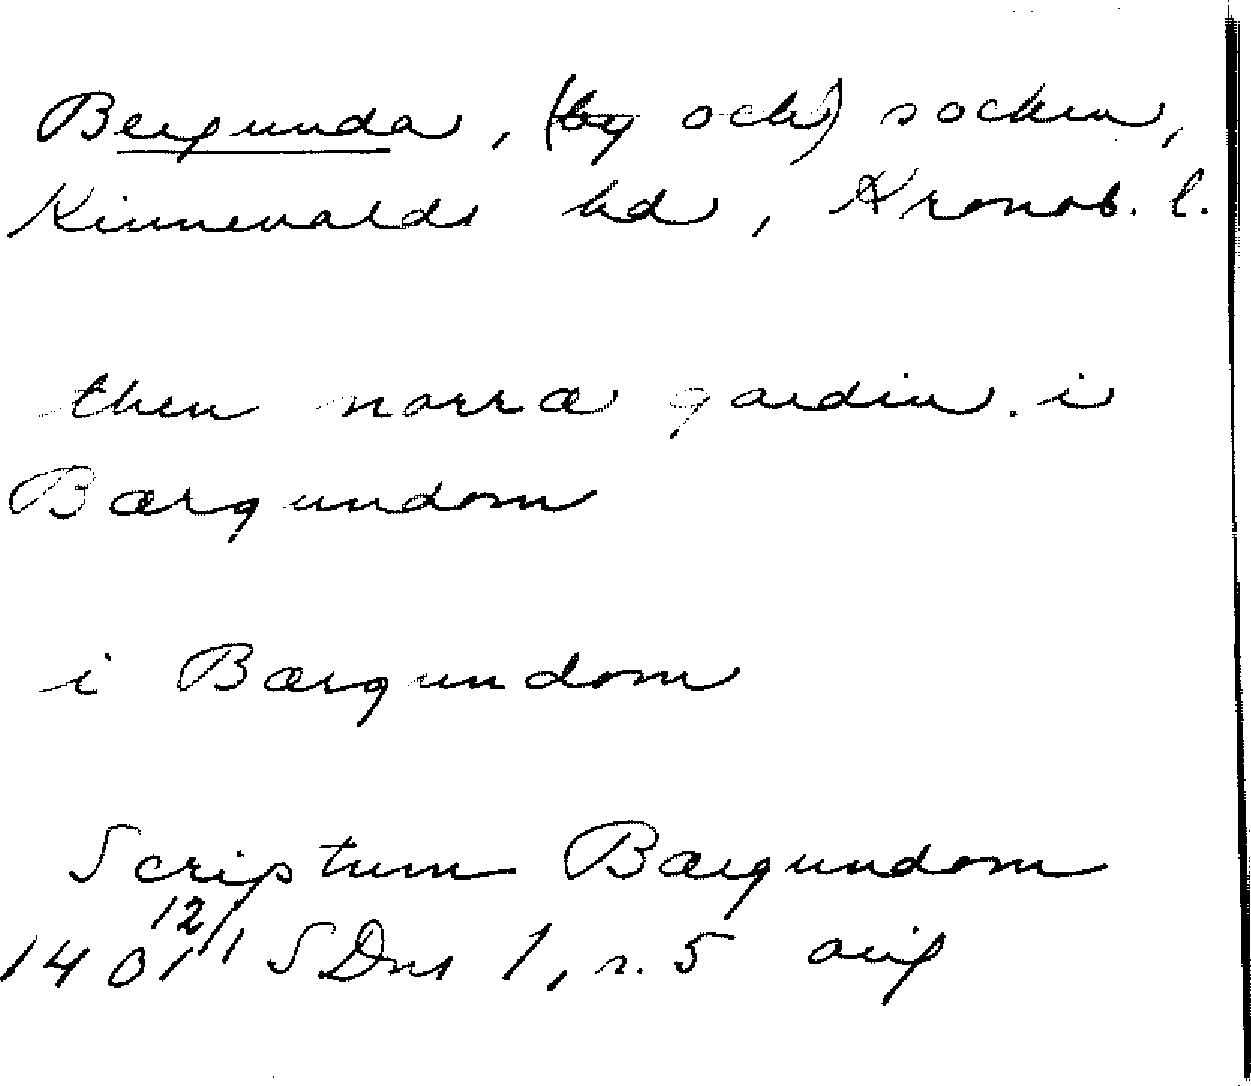 Bergunda, (by och) socken,
Kinnevalds hd, Kronob. l.
then norra gardin i
Bærgundom
i Bærgundom
Scriptum Bærgundom
1401 12/1 SDns 1, s. 5 orig